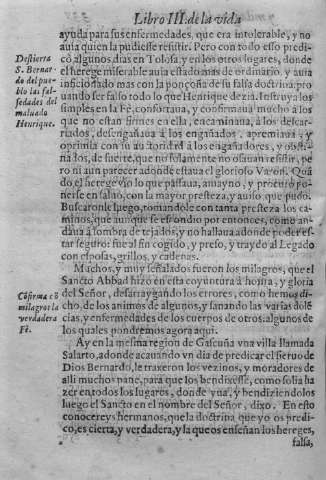 Libro III. de la vida
ayuda para sus enfermedades, que era intolerable, y no
auia quien la pudiesse resistir. Pero con todo esso predi-
có algunos dias en Tolosa, y en los otros lugares, donde
el herege miserable auia estado mas de ordinario, y auia
inficionado mas con la ponçoña de su falsa doctrina: pro
uando ser falso todo lo que Henrique dezia. Instruya los
simples en la Fè, confortaua, y confirmaua mucho a los
que no estan firmes en ella, encaminaua, à los descar-
riados, desengañaua à los engañados, apremiaua, y
oprimia con su autoridad à los engañadores, y obsti-
nados, de suerte, que no solamente no osauan resistir, pe
ro ni aun parecer adonde estaua el glorioso Varon. Quã
do el herege vio lo que passaua, amayno, y procurò po
nerse en saluo, con la mayor presteza, y auiso que pudo.
Buscaronle luego, tomandole con tanta presteza los ca-
minos, que aunque se escondio por entonces, como an-
daua à sombra de tejados, y no hallaua adonde poder es-
tar seguro: fue al fin cogido, y preso, y traydo al Legado
con esposas, grillos, y cadenas.
Muchos, y muy señalados fueron los milagros, que el
Sancto Abbad hizo en esta coyuntura à honra, y gloria
del Señor, desarraygando los errores, como hemos di-
cho, de los animos de algunos, y sanando las varias dolẽ
cias, y enfermedades de los cuerpos de otros: algunos de
los quales pondremos agora aqui.
Ay en la mesma region de Gascuña vna villa llamada
Salarto, adonde acauando vn dia de predicar el sieruo de
Dios Bernardo, le traxeron los vezinos, y moradores de
alli mucho pane, para que los bendixesse, como solia ha
zer en todos los lugares, donde yua, y bendiziendolos
luego el Sancto en el nombre del Señor, dixo. En esto
conocereys hermanos, que la doctrina que yo os predi-
co, es cierta, y verdadera, y la que os enseñan los hereges,
falsa,
Destierra
S. Bernar-
do del pue-
blo las fal-
sedades del
maluado
Henrique.
Cõfirma cõ
milagros la
verdadera
Fè.